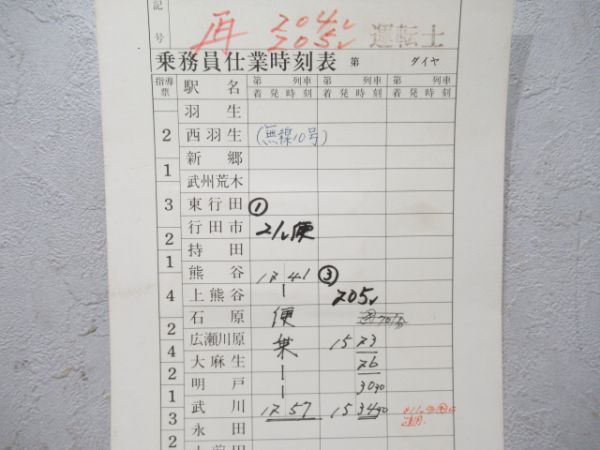 記号 再 204レ 運転士
205レ
乗務員仕業時刻表 第 ダイヤ
指導票 駅名 第 列車 第 列車
着発時刻 着発時刻
羽生
2 西羽生 (無線10号)
新郷
1 武州荒木
3 東行田 ①
2 行田市 21レ便
持田
1 熊谷 12 41 ③
4 上熊谷 205レ
石原 便
2 広瀬川原 乗 15 23
4 大麻生 26
2 明戸 30 30
1 武川 12 57 15 34 30
3 永田
2